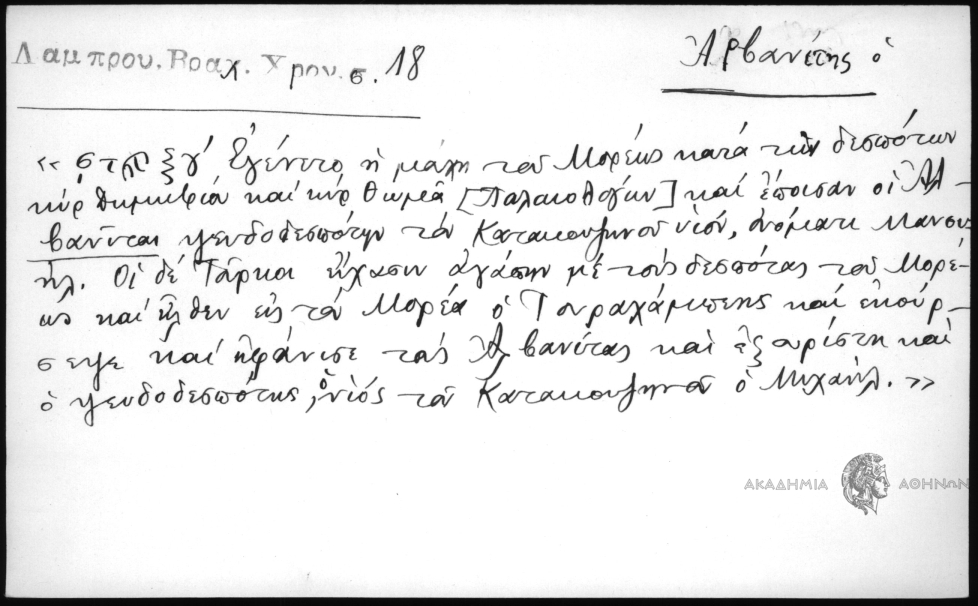 Λαμπρου. Βραχ. Χρον. σ. 18
Ἀρβανίτης ὁ
« ςτῷ ξγ' Ἐγένετο ἡ μάχη τοῦ Μορέως κατὰ τῶν δεσπότων
κὺρ Δημητρίου καὶ κὺρ Θωμᾶ [Παλαιολόγων] καὶ ἐποίσαν οἱ Ἀλ-
βανῖται ψευδοδεσπότην τὸν Κατακουζηνοῦ υἱόν, ὀνόματι Μανου
ήλ. Οἱ δὲ Τοῦρκοι εἴχασιν ἀγάπην μὲ τοὺς δεσπότας τοῦ Μορέ-
ως καὶ ἦλθεν εἰς τὸν Μορέα ὁ Τουραχάμπεης καὶ ἐκούρ-
σεψε καὶ ἠφάνισε τοὺς Ἀλβανίτας καὶ ἐξωρίστη καὶ
ὁ ψευδοδεσπότης, ὁ υἱός τοῦ Κατακουζηνοῦ ὁ Μιχαήλ. »
ΑΚΑΔΗΜΙΑ ΑΘΗΝΩΝ